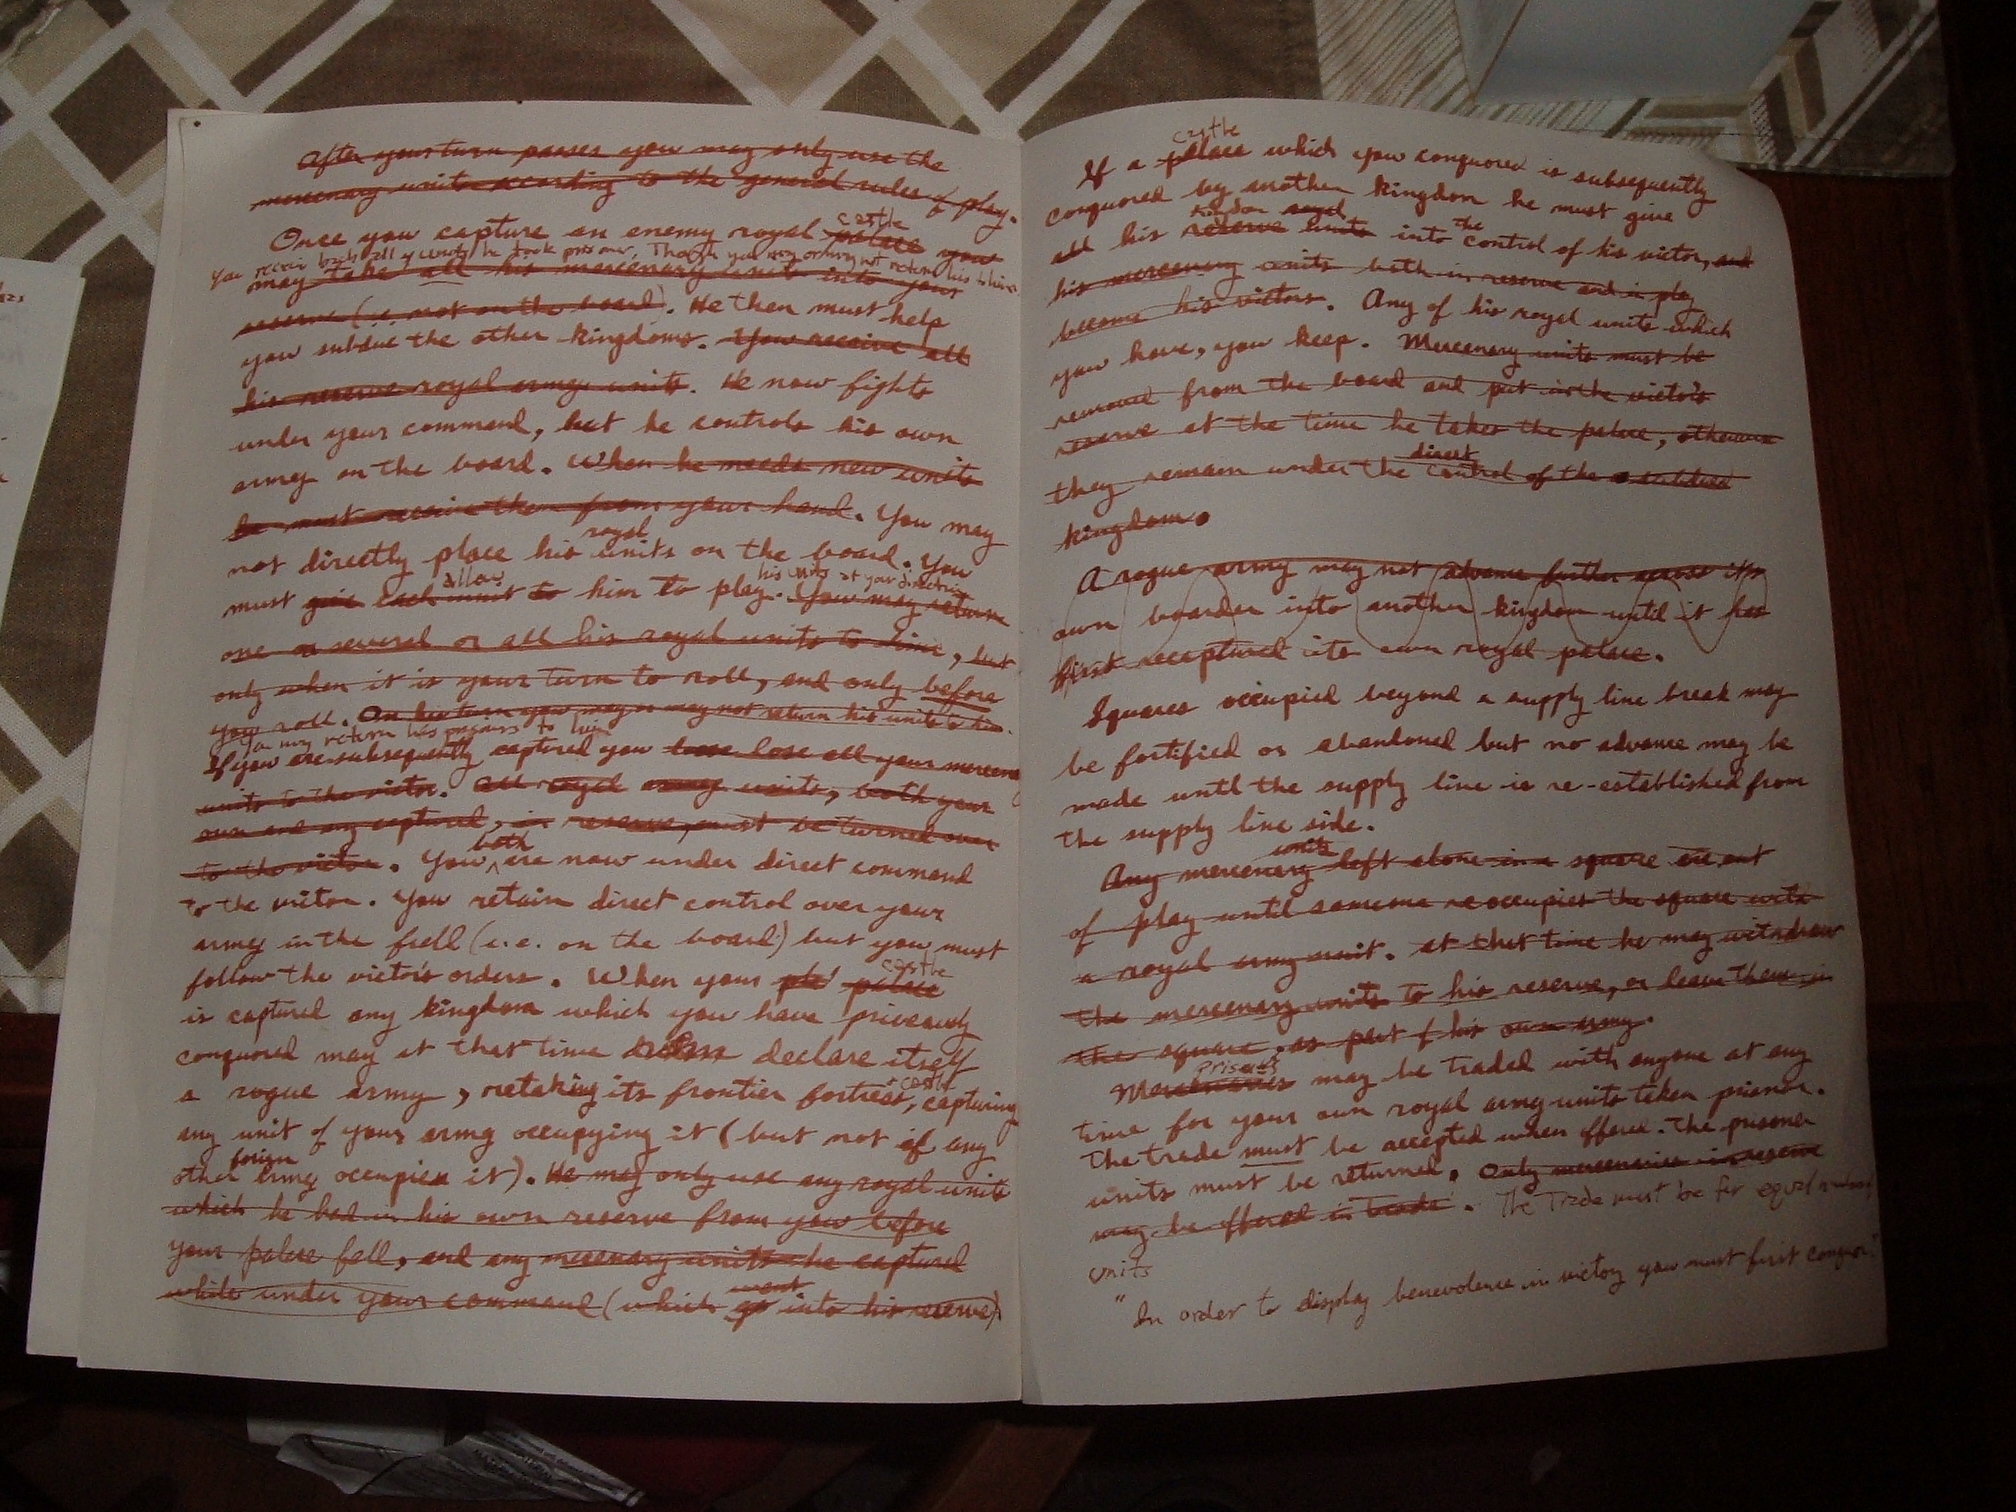 After your turn passes you may only use the
mercenary units acording to the general rules of play.
castle
Once you capture an enemy royal palace you
You receive back all units he took prisoner, Though you may or may not return his to him.
may take all his mercenary units into your
reserve (i.e. not on the board). He then must help
you subdue the other kingdoms. You receive all
his reserve royal army units. He now fights
under your command, but he controls his own
army on the board. When he needs new units
he must receive them from your hand. You may
royal
not directly place his units on the board. You
allow his units at your direction
must give each unit to him to play. You may return
one or several or all his royal units to him, but
only when it is your turn to roll, and only before
you roll. On his turn you may or may not return his units to him.
You may return his prisoners to him
If you are subsequently captured you loose lose all your mercenary
units to the victor. All royal army units, both your
own and any captured, in reserve, must be turned over
to the victor. You are now under direct command
both
to the victor. You retain direct control over your
army in the field (i.e. on the board) but you must
follow the victor's orders. When your pla palace
castle
is captured any kingdom which you have priveously
conquored may at that time declare itself
a rogue army, retaking its frontier fortress, capturing
+ castle
any unit of your army occupying it (but not if any
forign
other army occupies it). He may only use any royal units
which he had in his own reserve from you before
your palace fell, and any mercenary units he captured
while under your command (which go into his reserve)
went
castle
If a palace which you conquored is subsequently
conquored by another kingdom he must give
all his reserve units into the control of his victor, and
his mercenary units both in reserve and in play
become his victors. Any of his royal units which
you have, you keep. Mercenary units must be
removed from the board and put in the victor's
reserve at the time he takes the palace, otherwise
direct
they remain under the control of the
kingdom.
A rogue army may not advance further across its
own boarder into another kingdom until it has
first recaptured its own royal palace.
Squares occupied beyond a supply line break may
be fortified or abandoned but no advance may be
made until the supply line is re-established from
the supply line side.
units
Any mercenary left alone in a square are out
of play until someone reoccupies the square with
a royal army unit. At that time he may withdraw
the mercenary units to his reserve, or leave them in
the square, as part of his own army.
prisoners
Mercenaries may be traded with anyone at any
time for your own royal army units taken prisoner.
The trade must be accepted when offered. The prisoner
units must be returned. Only mercenaries in reserve
may be offered in trade. The Trade must be for equal
units
"In order to display benevolence in victory you must first conquor."